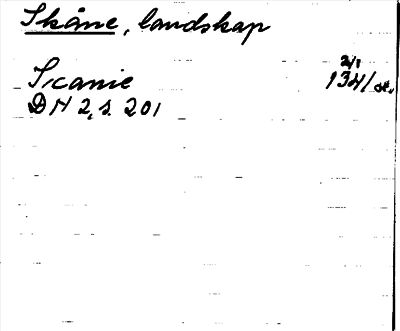 Skåne, landskap
Scanie 2/1 1341
DN 2, s. 201